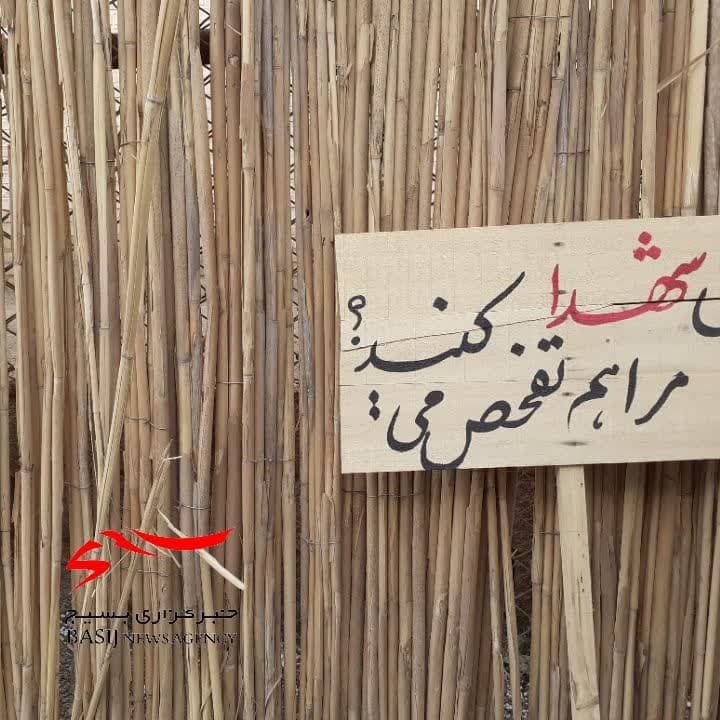 شهدا کنند؟
مرا هم تفحص می
خبرگزاری بسیج
BASIJ NEWS AGENCY